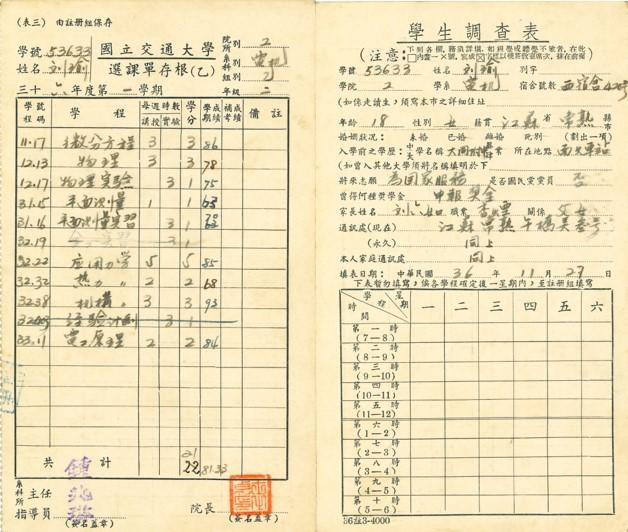 (表三) 由註冊組保存
學號 53633 國立交通大學 院別 2
姓名 刘瑜 選課單存根(乙) 系科別 電机
組別 乙
三十六年度第一學期 年級 二
學號程碼 學程 每週時數 講授 實驗 學分 學期成績 補考成績 備註
11.17 微分方程 3 3 86
12.13 物理 3 3 78
12.17 物理实验 3 1 75
31.15 平面测量 1 1 63
31.16 平面测量实習 3 1
32.19 3 1
32.22 应用力学 5 5 85
32.32 热力〃 2 2 68
32.38 机構〃 3 3 93
3 1
33.11 電工原理 2 2 84
共計 21 22 81.33
鍾兆琳
系科所主任
指導員 (簽名蓋章) 院長 (簽名蓋章)
學生調查表
(注意: 下列各欄,務須詳填,如經學成體學不被者,在此
學號 53633 姓名 刘瑜 別字
學院 2 學系 電机 宿舍號數 西宿舍
(如係走讀生,須寫本市之詳細住址
年齡 18 性別 女 籍貫 江蘇省 常熟 縣市
婚姻狀況: 未婚 已婚 離婚 死別 (劃出一項)
入學前之學歷: 大中 學名稱 大同附中 畢業肄業 所在地點 南火車站
(如曾入其他大學須將名稱填明於下
將來志願 為国家服務 是否國民黨黨員 否
曾得何種獎學金 申報奖金
家長姓名 職業 關係 父女
通訊處(現在) 江蘇常熟
(永久) 同上
本人家庭通訊處 同上
填表日期: 中華民國 36 年 11 月 27 日
下表暫勿填寫,俟各學程確定後一星期內,至註冊組填寫
學程 星期 時間 一 二 三 四 五 六
第一時 (7—8)
第二時 (8—9)
第三時 (9—10)
第四時 (10—11)
第五時 (11—12)
第六時 (1—2)
第七時 (2—3)
第八時 (3—4)
第九時 (4—5)
第十時 (5—6)
36註3-4000